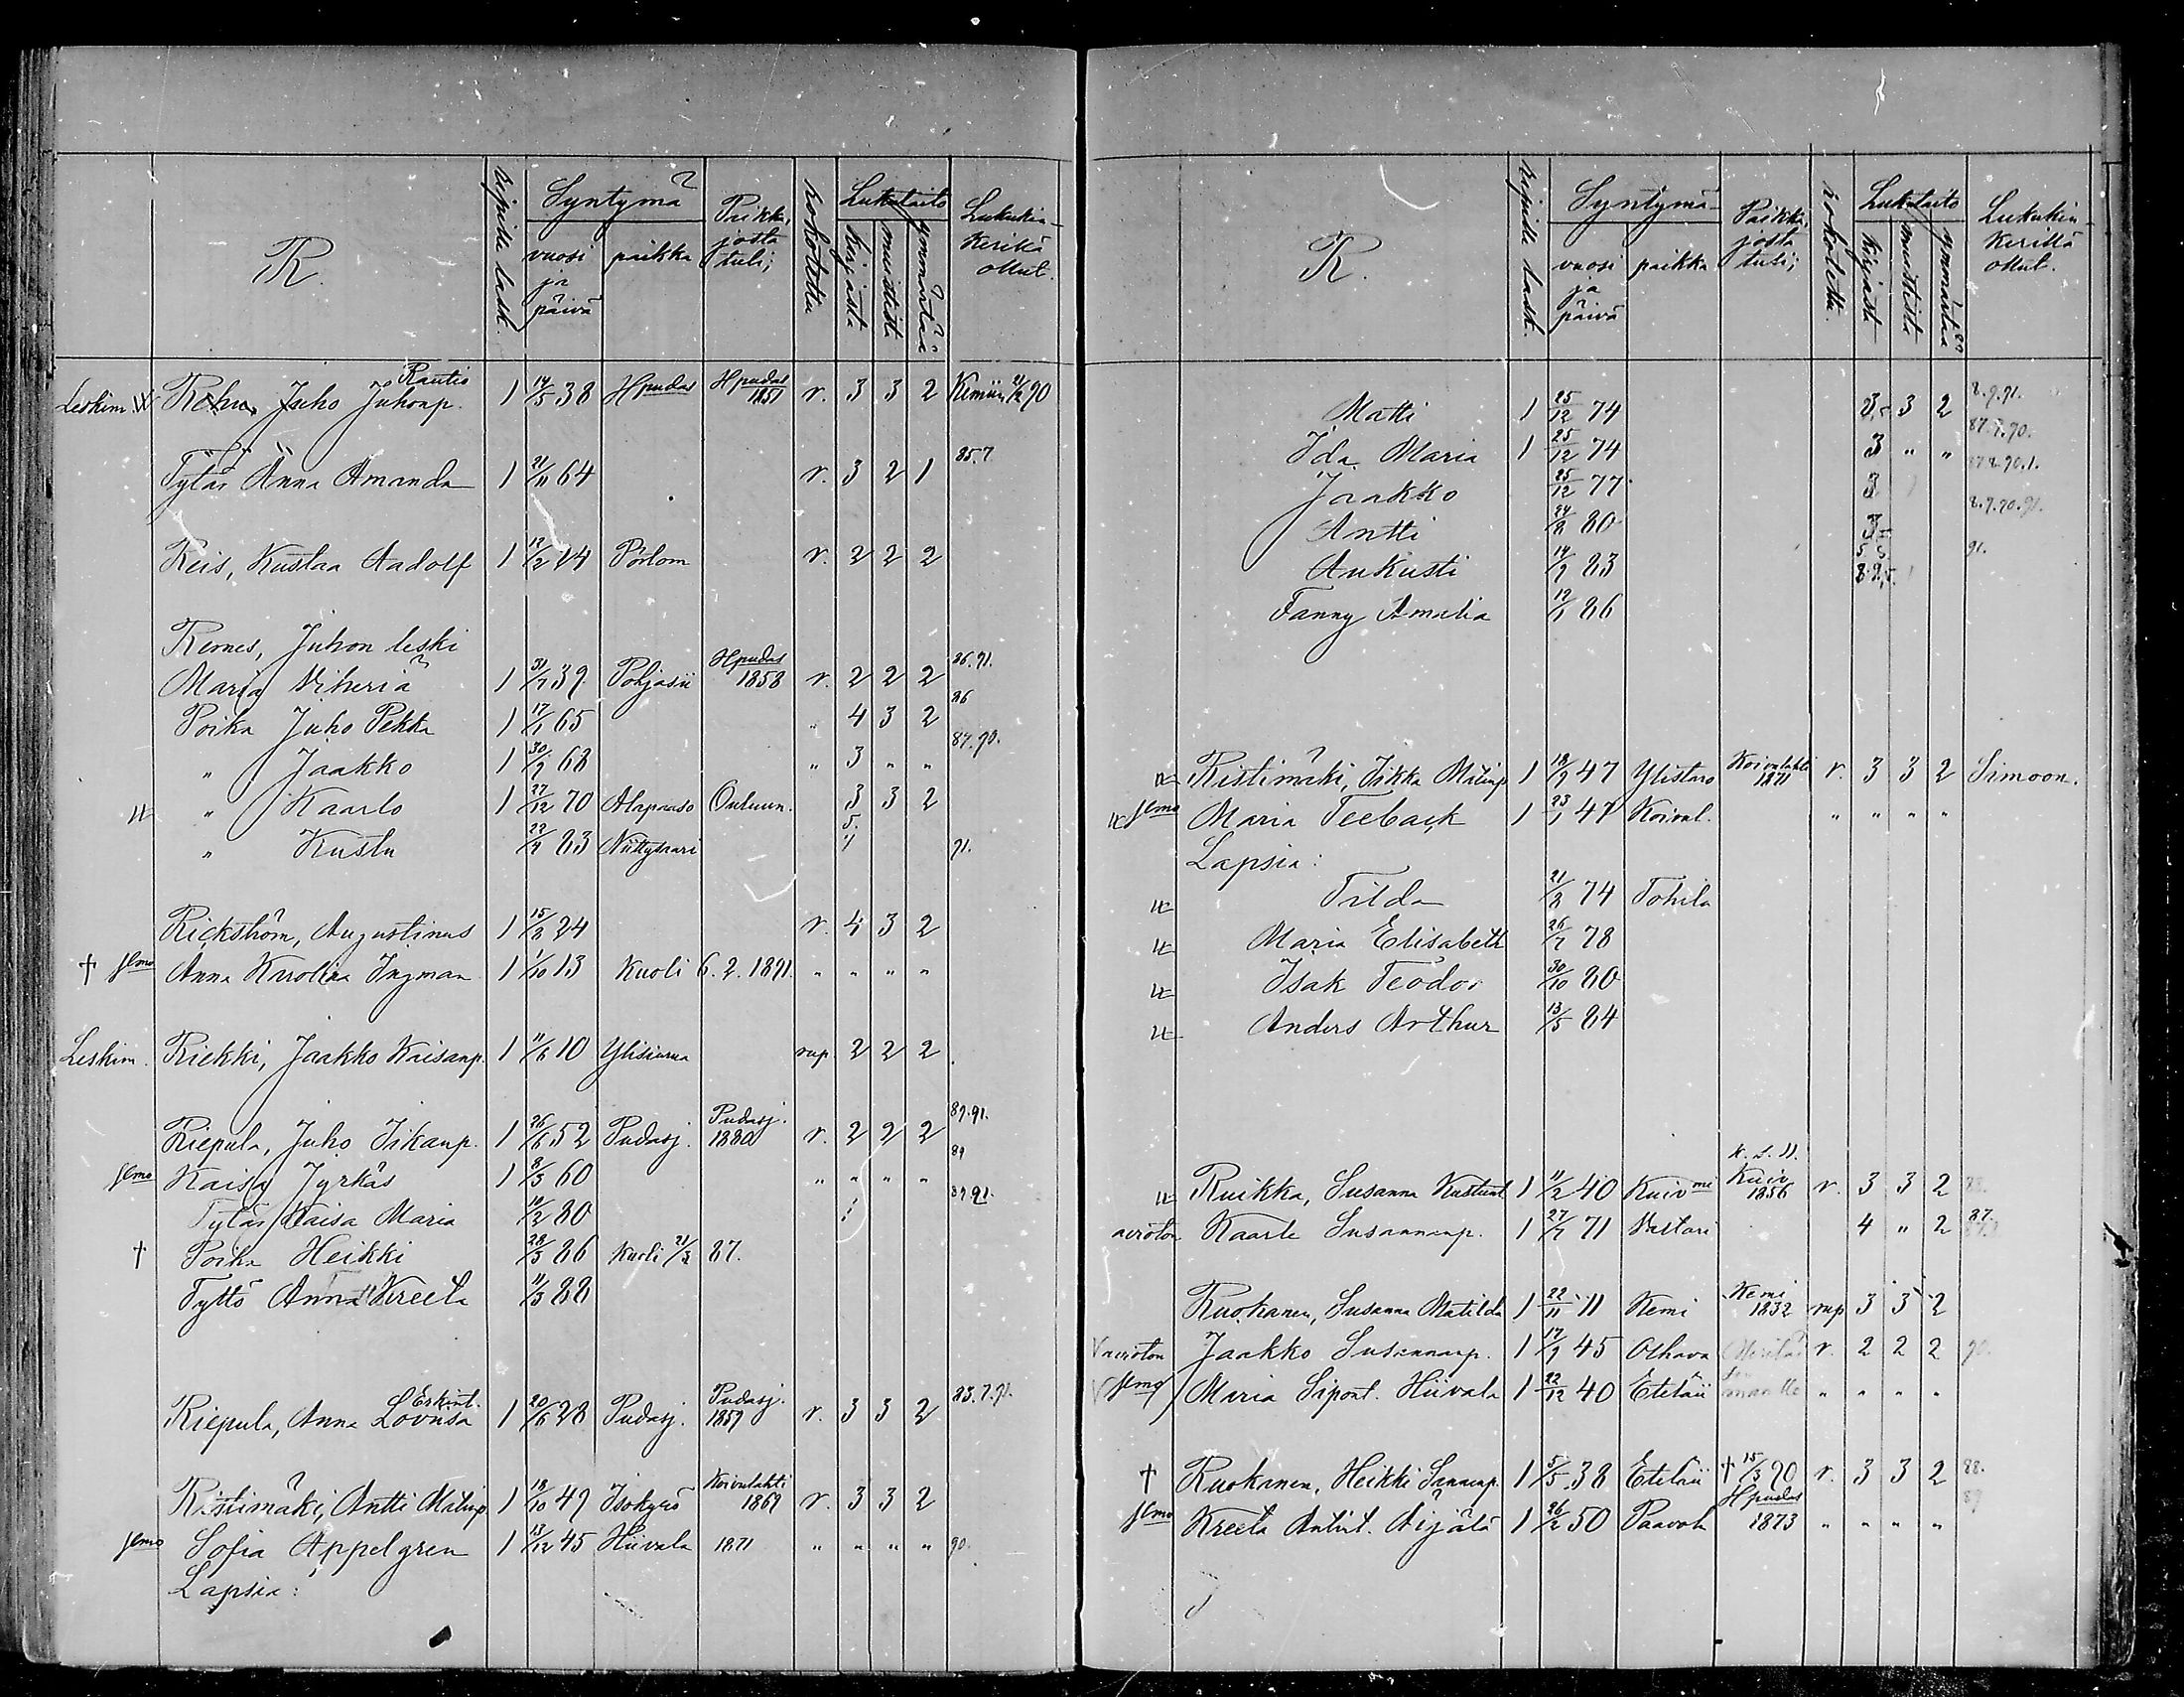 R.
Ripille lask.
Syntymä
vuosi ja päivä
paikka
Paikka, josta tuli;
Rokotettu
Lukutaito
kirjasta
muistista
ymmärtää
Lukukinkerillä ollut.
Rautio
Leskim. Juho Juhonp. 1 14/5 38 Hpudas Hpudas 1851 r. 3 3 2 Kemiin 90
Tytär Anna Amanda 1 21/11 64 r. 3 2 1 85.7
Reis, Kustaa Aadolf 1 12/2 44 Pörtom r. 2 2 2
Remes, Juhon leski
Maria Viheriä 1 31/7 39 Pohjasii Hpudas 1858 r. 2 2 2 86.91.
Poika Juho Pekka 1 17/1 65 " 4 3 2 86
" Jaakko 1 30/9 68 " 3 " " 87.90.
" Kaarlo 1 27/12 70 Ouluun. 3 3 2
" Kustu 22/4 83 Niittysaari 91.
Rickström, Augustinus 1 15/8 24 r. 4 3 2
† Anna Karolina Ingman 1 1/10 13 Kuoli 6.2.1891. " " " "
Leskim. Riekki, Jaakko Kaisanp. 1 11/6 10 rup 2 2 2
Riepula, Juho Iikanp. 1 26/6 52 Pudasj. Pudasj. 1880 r. 2 2 2 89.91.
Kaisa Jyrkäs 1 8/3 60 " " " " 89
Tytär Kaisa Maria 10/2 80 89.91.
† Poika Heikki 28/3 86 Kuoli 21/3 87.
Tyttö Anna Kreeta 11/3 88
Erkint.
Riepula, Anna Lovusa 1 20/6 28 Pudasj. Pudasj. 1859 r. 3 3 2
Ristimäki, Antti Matinp 1 18/10 49 Isokyrö Koivulahti 1869 r. 3 3 2
Sofia Appelgren 1 13/12 45 Hiivala 1871 " " " " 90.
Lapsia:
R.
Ripille lask.
Syntymä-
vuosi ja päivä
paikka
Paikka, josta tuli;
rokotettu.
Lukutaito
kirjasta
muistista
ymmärtää
Lukukinkerillä ollut.
Matti 1 25/12 74 3 3 2 8.9.91.
Ida Maria 1 25/12 74 3 " " 87.9.90.
Jaakko 25/12 77 3
Antti 24/8 80 3 8.9.90.91.
Aukusti 14/9 83 91.
Fanny Amalia 12/1 86
Ristimäki, Iikka Matinp 1 18/9 47 Ylistaro Koivulahti 1871 r. 3 3 2 Simoon.
Maria Teeback 1 23/1 47 Koivul. " " " "
Lapsia:
Tilda 21/8 74 Tohila
Maria Elisabeth 26/7 78
Isak Teodor 30/10 80
Anders Arthur 13/5 84
Ruikka, Susanna Kustunt 1 11/2 40 Kuivmi Kuiv 1856 r. 3 3 2
avioton Kaarle Susannanp. 1 27/7 71 4 " 2 87.
Ruokanen, Susanna Matilda 1 22/11 11 Kemi Kemi 1832 rup 3 3 2
avioton Jaakko Susannanp. 1 17/9 45 Olhava r. 2 2 2 90.
Maria Sipont. Hiivala 1 22/12 40 Eteläii " " " "
† Ruokanen, Heikki Sannanp. 1 5/5 38 Eteläii † 15/3 90 r. 3 3 2 88.
Kreeta Antint. Äijälä 1 26/2 50 Paavola Hpudas 1873 " " " " 89